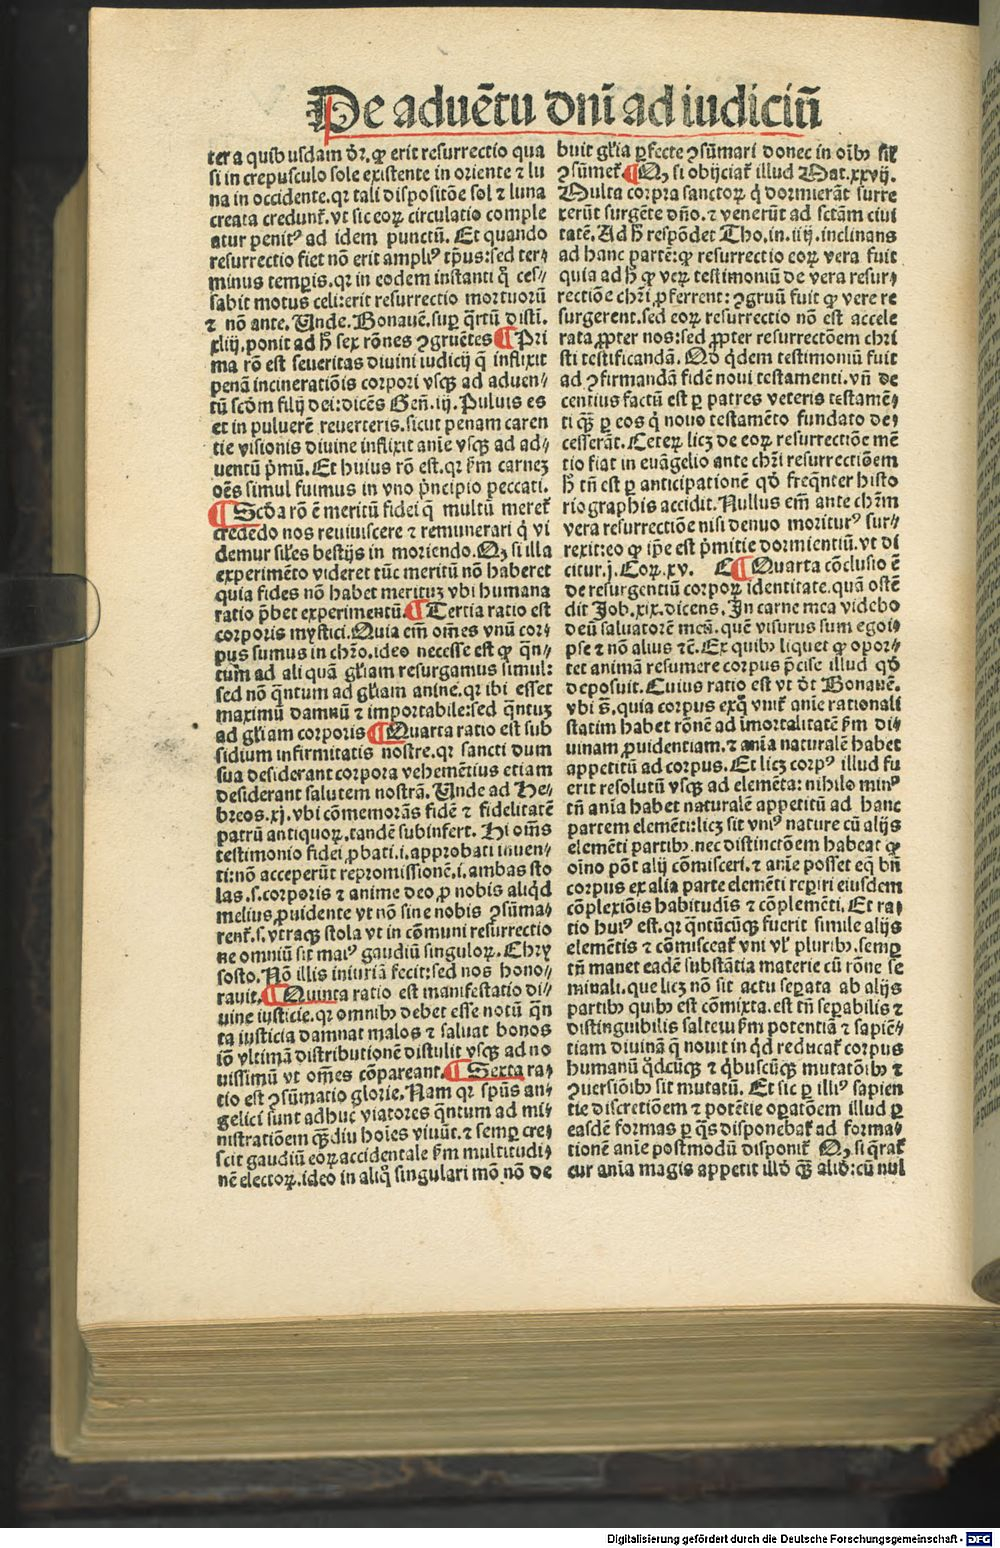 De aduētu dn̄i ad iudiciū
ter a quibusdam dr̄. ꝙ erit resurrectio qua
si in crepusculo sole existente in oriente ⁊ lu
na in occidente. qr tali dispositōe sol ⁊ luna
creata credunt̄. vt sic eoꝝ circulatio comple
atur penitꝰ ad idem punctū. Et quando
resurrectio fiet nō erit ampliꝰ tp̄us: sed ter⸗
minus temꝑis. qr in eodem instanti q̊ ces⸗
sabit motus celi: erit resurrectio mortuorū
⁊ nō ante. Unde. Bonauē. suꝑ q̄rtū disti.
xliij. ponit ad h̄ sex rōnes ꝯgruētes ¶ Pri
ma rō est seueritas diuini iudicij q̄ inflixit
penā incineratiōis corpori vsqꝫ ad aduen⸗
tū scd̄m filij dei: dicēs Gen̄. iij. Puluis es
et in puluerē reuerteris. sicut penam caren
tie visionis diuine inflixit anīe vsqꝫ ad ad⸗
uentū p̄mū. Et huius rō est. qr ẜm carnez
oēs simul fuimus in vno p̄ncipio peccati.
¶ Scd̄a rō ē meritū fidei q̄ multū meret̄
credēdo nos reuiuiscere ⁊ remunerari q̊ vi
demur sil̄es bestijs in moriendo. Qꝫ si illa
experimēto videret tūc meritū nō haberet
quia fides nō habet merituz vbi humana
ratio p̄bet experimentū. ¶ Tertia ratio est
corporis mystici. Quia em̄ om̄es vnū cor⸗
pus sumus in chr̄o. ideo necesse est ꝙ q̄n⸗
tum ad ali quā gl̄iam resurgamus simul:
sed nō q̄ntum ad gl̄iam anime. qr ibi esset
maximū damnū ⁊ importabile: sed q̄ntuz
ad gl̄iam corporis ¶ Quarta ratio est sub
sidium infirmitatis nostre. qr sancti dum
sua desiderant corpora vehemētius etiam
desiderant salutem nostrā. Unde ad He⸗
breos. xj. vbi cōmemorās fidē ⁊ fidelitatē
patrū antiquoꝝ. tandē subinfert. Hi om̄s
testimonio fidei ꝓbati. i. approbati inuen⸗
ti: nō acceperūt repromissionē. i. ambas sto
las. s. corporis ⁊ anime deo ꝓ nobis aliq̊d
melius ꝓuidente vt nō sine nobis ꝯsūma⸗
rent̄. s. vtraqꝫ stola vt in cōmuni resurrectio
ne omniū sit maiꝰ gaudiū singuloꝝ. Chry
sosto. Nō illis iniuriā fecit: sed nos hono⸗
rauit. ¶ Quinta ratio est manifestatio di⸗
uine iusticie. qr omnibꝰ debet esse notū q̄n
ta iusticia damnat malos ⁊ saluat bonos
iō vltimā distributionē distulit vsqꝫ ad no
uissimū vt om̄es cōpareant. ¶ Sexta ra⸗
tio est ꝯsūmatio glorie. Nam qr spūs an⸗
gelici sunt adhuc viatores q̄ntum ad mi⸗
nistratiōem qꝫdiu hoīes viuūt. ⁊ semꝑ cre⸗
scit gaudiū eoꝝ accidentale ẜm multitudi⸗
nē electoꝝ. ideo in aliq̊ singulari mō nō de
buit gl̄ia ꝑfecte ꝯsūmari donec in oībꝰ sil̄
ꝯsūmet̄. ¶ Qꝫ si obijciat̄ illud Mat. xxvij.
Multa corpora sanctoꝝ q̄ dormierāt surre
xerūt surgēte dn̄o. ⁊ venerūt ad sctām ciui
tatē. Ad h̄ respōdet Tho. in. iiij. inclinans
ad hanc partē: ꝙ resurrectio eoꝝ vera fuit
quia ad h̄ ꝙ veꝝ testimoniū de vera resur⸗
rectiōe chr̄i ꝓferrent: ꝯgruū fuit ꝙ vere re
surgerent. sed eoꝝ resurrectio nō est accele
rata ꝓpter nos: sed ꝓpter resurrectōem chri
sti testificandā. Qd̄ q̊dem testimoniū fuit
ad ꝯfirmandā fidē noui testamenti. vn̄ de
centius factū est ꝑ patres veteris testamē⸗
ti qꝫ ꝑ eos q̊ nouo testamēto fundato de⸗
cesserāt. Ceteꝝ licꝫ de eoꝝ resurrectiōe mē
tio fiat in euāgelio ante chr̄i resurrectiōem
h̄ tn̄ est ꝑ anticipationē qd̄ freq̄nter histo
riographis accidit. Nullus em̄ ante chr̄m
vera resurrectiōe nisi denuo moriturꝰ sur⸗
rexit: eo ꝙ ip̄e est p̄mitie dormientiū. vt di
citur. j. Coꝝ. xv. C ¶ Quarta cōclusio ē
de resurgentiū corpoꝝ identitate. quā ostē
dit Job. xix. dicens. In carne mea videbo
deū saluatorē meū. quē visurus sum ego i⸗
pse ⁊ nō alius ⁊c̄. Ex quibꝰ liquet ꝙ opor⸗
tet animā resumere corpus p̄cise illud qd̄
deposuit. Cuius ratio est vt dt̄ Bonauē.
vbi s̄. quia corpus exq̊ vnit̄ anīe rationali
statim habet rōnē ad īmortalitatē ẜm di⸗
uinam ꝓuidentiam. ⁊ anīa naturalē habet
appetitū ad corpus. Et licꝫ corpꝰ illud fu
erit resolutū vsqꝫ ad elemēta: nihilo minꝰ
tn̄ anīa habet naturalē appetitū ad hanc
partem elemēti: licꝫ sit vniꝰ nature cū alijs
elemēti partibꝰ. nec distinctōem habeat ꝙ
oīno pōt alij cōmisceri. ⁊ anīe posset eq̄ bn̄
corpus ex alia parte elemēti reꝑiri eiusdem
cōplexiōis habitudīs ⁊ cōplemēti. Et ra⸗
tio huiꝰ est. qr q̄ntūcūqꝫ fuerit simile alijs
elemētis ⁊ cōmisceat̄ vni vl̓ pluribꝰ. semꝑ
tn̄ manet eadē substātia materie cū rōne se
minali. que licꝫ nō sit actu seꝑata ab alijs
partibꝰ quibꝰ est cōmixta. est tn̄ seꝑabilis ⁊
distinguibilis saltem ẜm potentiā ⁊ sapiē⸗
tiam diuinā q̄ nouit in q̊d reducat̄ corpus
humanū q̊dcūqꝫ ⁊ q̊buscūqꝫ mutatōibꝰ ⁊
ꝯuersiōibꝰ sit mutatū. Et sic ꝑ illiꝰ sapien
tie discretiōem ⁊ potētie oꝑatōem illud ꝑ
easdē formas ꝑ q̄s disponebat̄ ad forma⸗
tionē anīe postmodū disponit̄ Qꝫ si q̄rat̄
cur anīa magis appetit illd̄ qꝫ aliō: cū nul
Digitalisierung gefördert durch die Deutsche Forschungsgemeinschaft - DFG